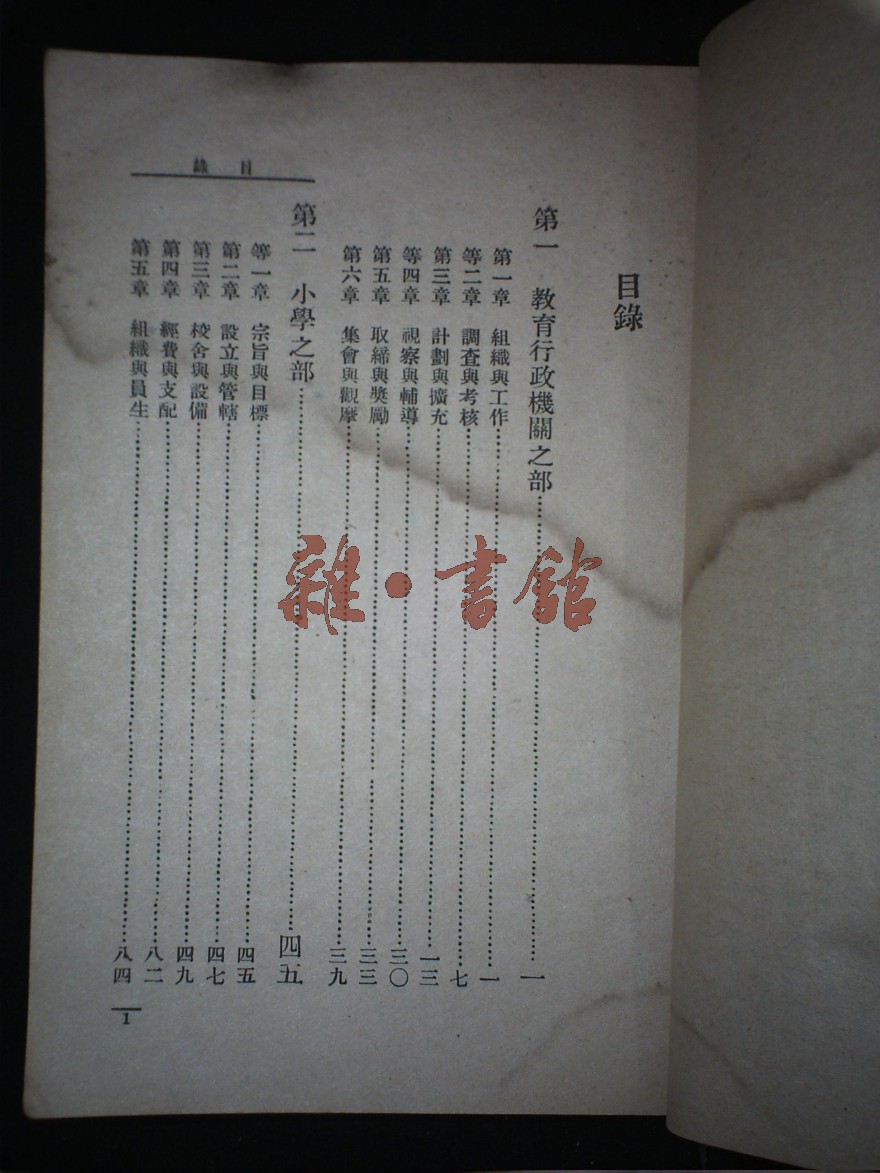 目錄
第一　教育行政機關之部……一
第一章　組織與工作……一
等二章　調查與考核……七
第三章　計劃與擴充……一三
等四章　視察與輔導……三〇
第五章　取締與獎勵……三三
第六章　集會與觀摩……三九
第二　小學之部……四五
等一章　宗旨與目標……四五
第二章　設立與管轄……四七
第三章　校舍與設備……四九
第四章　經費與支配……八二
第五章　組織與員生……八四
目錄
1
雜·書館